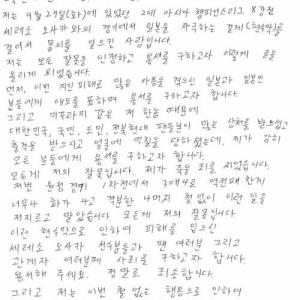 저는 9월 27일(화)에 있었던 2011 아시아 챔피언스리그 8강전
세레소 오사카와의 경기에서 일본을 자극하는 걸개(현수막)를
걸어서 물의를 일으킨 사람입니다.
저는 모든 잘못을 인정하고 용서를 구하고자 이렇게 글을
올리게 되었습니다.
먼저, 이번 지진 피해로 많은 아픔을 겪으신 일본과 일본인
분들에게 애도를 표하며 용서를 구하고자 합니다.
그리고 저 한놈 때문에
대한민국, 국민, 도민, 전북현대 팬들분이 많은 상처를 받으셨고
충격을 받으시고 얼굴에 먹칠을 당하셨는데, 제가 감히
모든 분들에게 용서를 구하고자 합니다.
모든게 저의 잘못입니다. 제가 죽을 죄를 지었습니다.
저번 원정 경기 1차전에서 3대4로 역전패 한게
너무나 화가 나고 격분한 나머지 철없이 이런 일을
저지르고 말았습니다. 모든게 저의 잘못입니다
이런 현수막으로 인하여 피해를 입으신
세레소 오사카 선수분들과 팬 여러분 그리고
관계자 여러분께 사죄를 구하고자 합니다.
용서해 주세요. 정말로 죄송합니다.
그리고 저는 이번 철 없는 행동으로 인하여